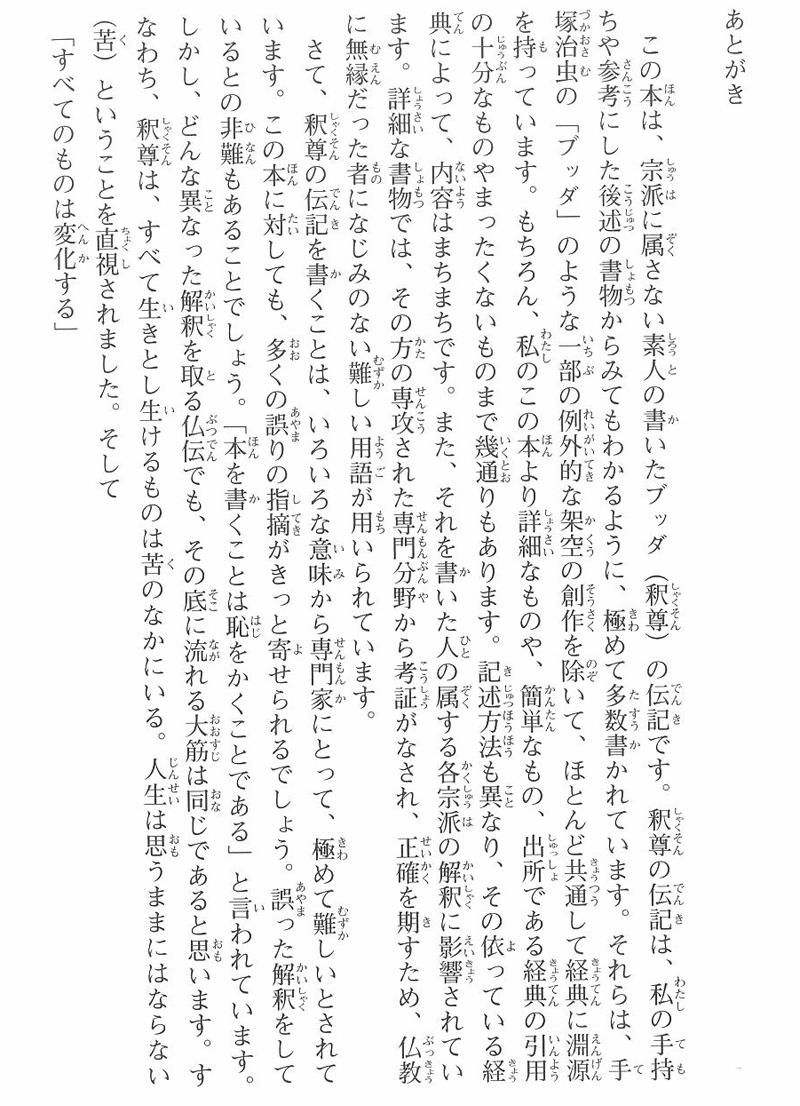 あとがき
この本は、宗派に属さない素人の書いたブッダ（釈尊）の伝記です。釈尊の伝記は、私の手持
ちや参考にした後述の書物からみてもわかるように、極めて多数書かれています。それらは、手
塚治虫の「ブッダ」のような一部の例外的な架空の創作を除いて、ほとんど共通して経典に淵源
を持っています。もちろん、私のこの本より詳細なものや、簡単なもの、出所である経典の引用
の十分なものやまったくないものまで幾通りもあります。記述方法も異なり、その依っている経
典によって、内容はまちまちです。また、それを書いた人の属する各宗派の解釈に影響されてい
ます。詳細な書物では、その方の専攻された専門分野から考証がなされ、正確を期すため、仏教
に無縁だった者になじみのない難しい用語が用いられています。
さて、釈尊の伝記を書くことは、いろいろな意味から専門家にとって、極めて難しいとされて
います。この本に対しても、多くの誤りの指摘がきっと寄せられるでしょう。誤った解釈をして
いるとの非難もあることでしょう。「本を書くことは恥をかくことである」と言われています。
しかし、どんな異なった解釈を取る仏伝でも、その底に流れる大筋は同じであると思います。す
なわち、釈尊は、すべて生きとし生けるものは苦のなかにいる。人生は思うままにはならない
（苦）ということを直視されました。そして
「すべてのものは変化する」